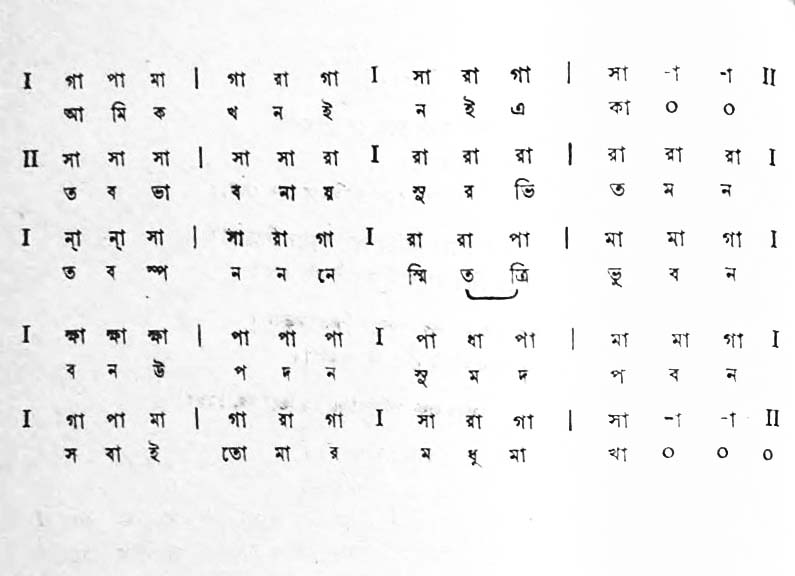 I গা পা মা | গা রা গা I সা রা গা | সা -া -া II
আ মি ক খ ন ই ন ই এ কা ০ ০
II সা সা সা | সা সা রা I রা রা রা | রা রা রা I
ত ব ভা ব না য় সু র ভি ত ম ন
I ন্া ন্া সা | সা রা গা I রা রা পা | মা মা গা I
ত ব স্প ন ন নে স্মি ত ত্রি ভু ব ন
I ক্ষা ক্ষা ক্ষা | পা পা পা I পা ধা পা | মা মা গা I
ব ন উ প দ ন সু ম দ প ব ন
I গা পা মা | গা রা গা I সা রা গা | সা -া -া II
স বা ই তো মা র ম ধু মা খা ০ ০ ০